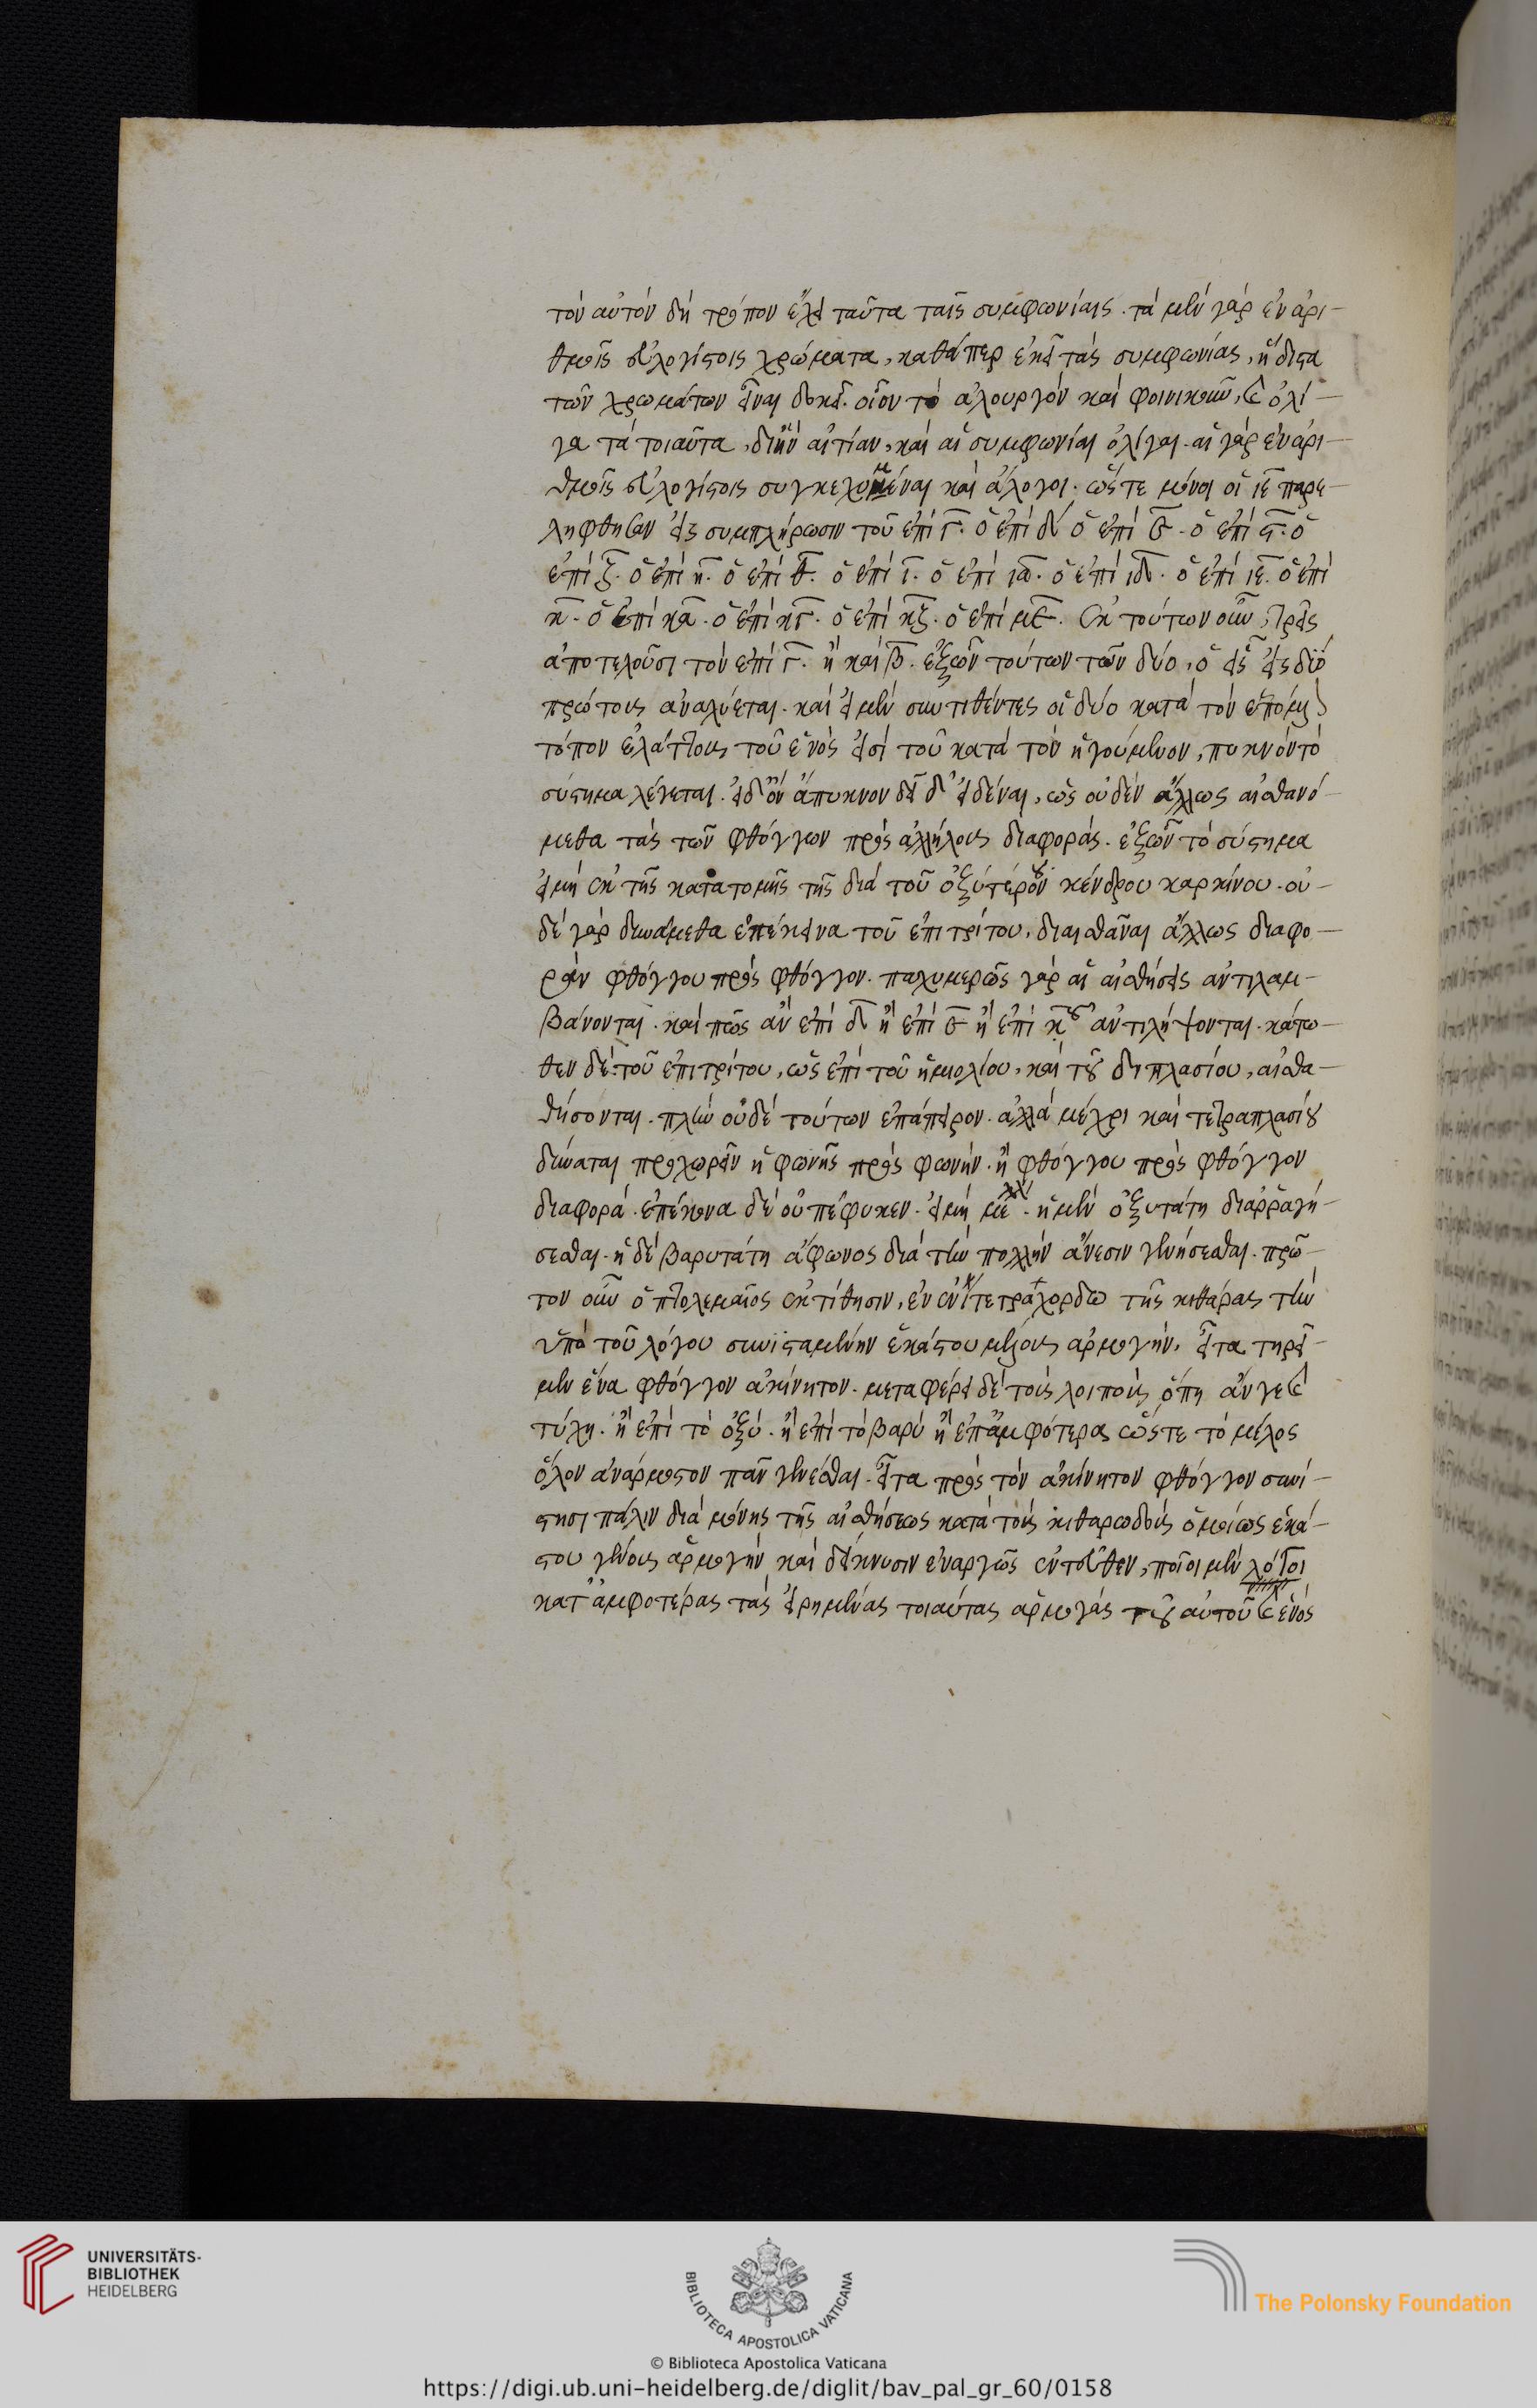 τὸν αὐτὸν δὴ τρόπον ἔχει ταῦτα ταῖς συμφωνίαις. τὰ μὲν γὰρ ἐν ἀρι-
θμοῖς εὐλογίστοις χρώματα, καθάπερ ἐκεῖ τὰς συμφωνίας, ἥδιστα
τῶν χρωμάτων εἶναι δοκεῖ. οἷον τὸ ἁλουργὸν καὶ φοινικοῦν, καὶ ὀλί-
γα τὰ τοιαῦτα, δι' ἣν αἰτίαν, καὶ αἱ συμφωνίαι ὀλίγαι. αἱ γὰρ ἐν ἀρι-
θμοῖς εὐλογίστοις συγκεχυμέναι καὶ ἄλογοι. ὥστε μόνοι οἱ ιε παρε-
λήφθησαν εἰς συμπλήρωσιν τοῦ ἐπὶ γ. ὁ ἐπὶ δ ὁ ἐπὶ ε. ὁ ἐπὶ ς. ὁ
ἐπὶ ζ. ὁ ἐπὶ η. ὁ ἐπὶ θ. ὁ ἐπὶ ι. ὁ ἐπὶ ια. ὁ ἐπὶ ιδ. ὁ ἐπὶ ιε. ὁ ἐπὶ
κ. ὁ ἐπὶ κα. ὁ ἐπὶ κγ. ὁ ἐπὶ κζ. ὁ ἐπὶ με. ἐκ τούτων οὖν, τρεῖς
ἀποτελοῦσι τὸν ἐπὶ γ. ἢ καὶ β. ἐξ ὧν τούτων τῶν δύο, ὁ εἷς εἰς δύο
πρώτους ἀναλύεται. καὶ εἰ μὲν συντιθέντες οἱ δύο κατὰ τὸν ἑπόμενον
τόπον ἐλάττους τοῦ ἑνὸς εἰσὶ τοῦ κατὰ τὸν ἡγούμενον, πυκνὸν τὸ
σύστημα λέγεται. εἰ δ' οὖν ἄπυκνον δεῖ δ' εἰδέναι, ὡς οὐδὲν ἄλλως αἰσθανό-
μεθα τὰς τῶν φθόγγων πρὸς ἀλλήλους διαφοράς. ἐξ ὧν τὸ σύστημα
εἰ μὴ ἐκ τῆς κατατομῆς τῆς διὰ τοῦ ὀξυτέρου κένδρου καρκίνου. οὐ-
δὲ γὰρ δυνάμεθα ἐπέκεινα τοῦ ἐπιτρίτου, διαισθᾶναι ἄλλως διαφο-
ρὰν φθόγγου πρὸς φθόγγον. παχυμερῶς γὰρ αἱ αἰσθήσεις ἀντιλαμ-
βάνονται. καὶ πῶς ἂν ἐπὶ δ ἢ ἐπὶ ε ἢ ἐπὶ κ ἀντιλήψονται. κάτω-
θεν δὲ τοῦ ἐπιτρίτου, ὡς ἐπὶ τοῦ ἡμιολίου, καὶ τοῦ διπλασίου, αἰσθα-
θήσονται. πλὴν οὐδὲ τούτων ἐπ' ἄπειρον. ἀλλὰ μέχρι καὶ τετραπλασίου
δύναται προχωρεῖν ἡ φωνῆς πρὸς φωνὴν. ἢ φθόγγου πρὸς φθόγγον
διαφορά. ἐπέκεινα δὲ οὐ πέφυκεν. εἰ μὴ. ἡ μὲν ὀξυτάτη διαρραγή-
σεσθαι. ἡ δὲ βαρυτάτη ἄφωνος διὰ τὴν πολλὴν ἄνεσιν γενήσεσθαι. πρῶ-
τον οὖν ὁ πτολεμαῖος ἐκτίθησιν, ἐν ἑνὶ τετραχόρδω τῆς κιθάρας τὴν
ὑπὸ τοῦ λόγου συνισταμένην ἑκάστου μέλους ἁρμογήν, εἶτα τηρεῖ
μὲν ἕνα φθόγγον ἀκίνητον. μεταφέρει δὲ τοὺς λοιποὺς ὅπη ἄν γε καὶ
τύχη. ἢ ἐπὶ τὸ ὀξύ. ἢ ἐπὶ τὸ βαρὺ ἢ ἐπ' ἀμφότερα ὥστε τὸ μέλος
ὅλον ἀνάρμοστον πᾶν γενέσθαι. εἶτα πρὸς τὸν ἀκίνητον φθόγγον συνί-
στησι πάλιν διὰ μόνης τῆς αἰσθήσεως κατὰ τοὺς κιθαρωδοὺς ὁμοίως ἑκά-
στου γένους ἁρμογὴν καὶ δείκνυσιν ἐναργῶς ἐντεῦθεν, ποῖοι μὲν λόγοι
κατ' ἀμφοτέρας τὰς εἰρημένας τοιαύτας ἁρμογὰς τοῦ αὐτοῦ καὶ ἑνὸς
UNIVERSITÄTS-
BIBLIOTHEK
HEIDELBERG
BIBLIOTECA APOSTOLICA VATICANA
© Biblioteca Apostolica Vaticana
The Polonsky Foundation
https://digi.ub.uni-heidelberg.de/diglit/bav_pal_gr_60/0158